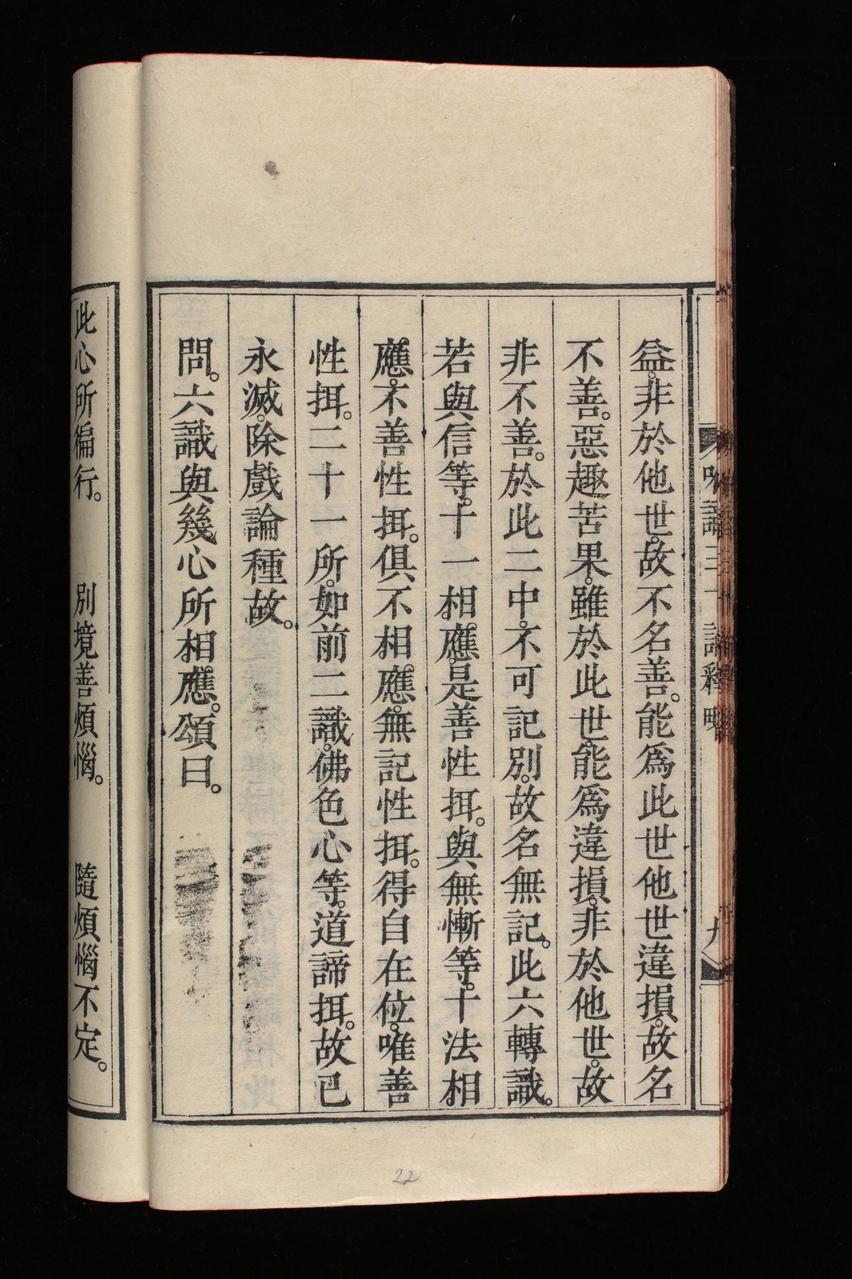 唯識三十論釋略
九
益。非於他世。故不名善。能爲此世他世違損。故名
不善。惡趣苦果。雖於此世。能爲違損。非於他世。故
非不善。於此二中。不可記別。故名無記。此六轉識。
若與信等。十一相應。是善性揖。與無慚等。十法相
應。不善性揖。俱不相應。無記性揖。得自在位。唯善
性揖。二十一所。如前二識。佛色心等。道諦揖。故已
永滅。除戲論種故。
問。六識與幾心所相應。頌曰。
此心所徧行。 別境善煩惱。 隨煩惱不定。
22